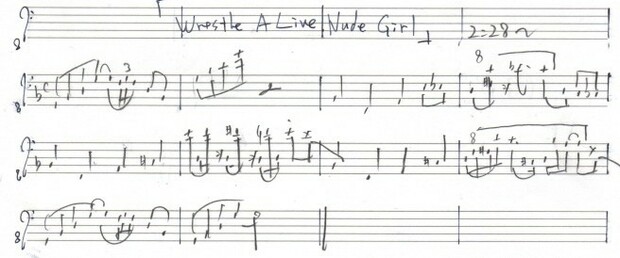 「Wrestle A Live Nude Girl」 2=28~
8
3
8
8
8
8
8